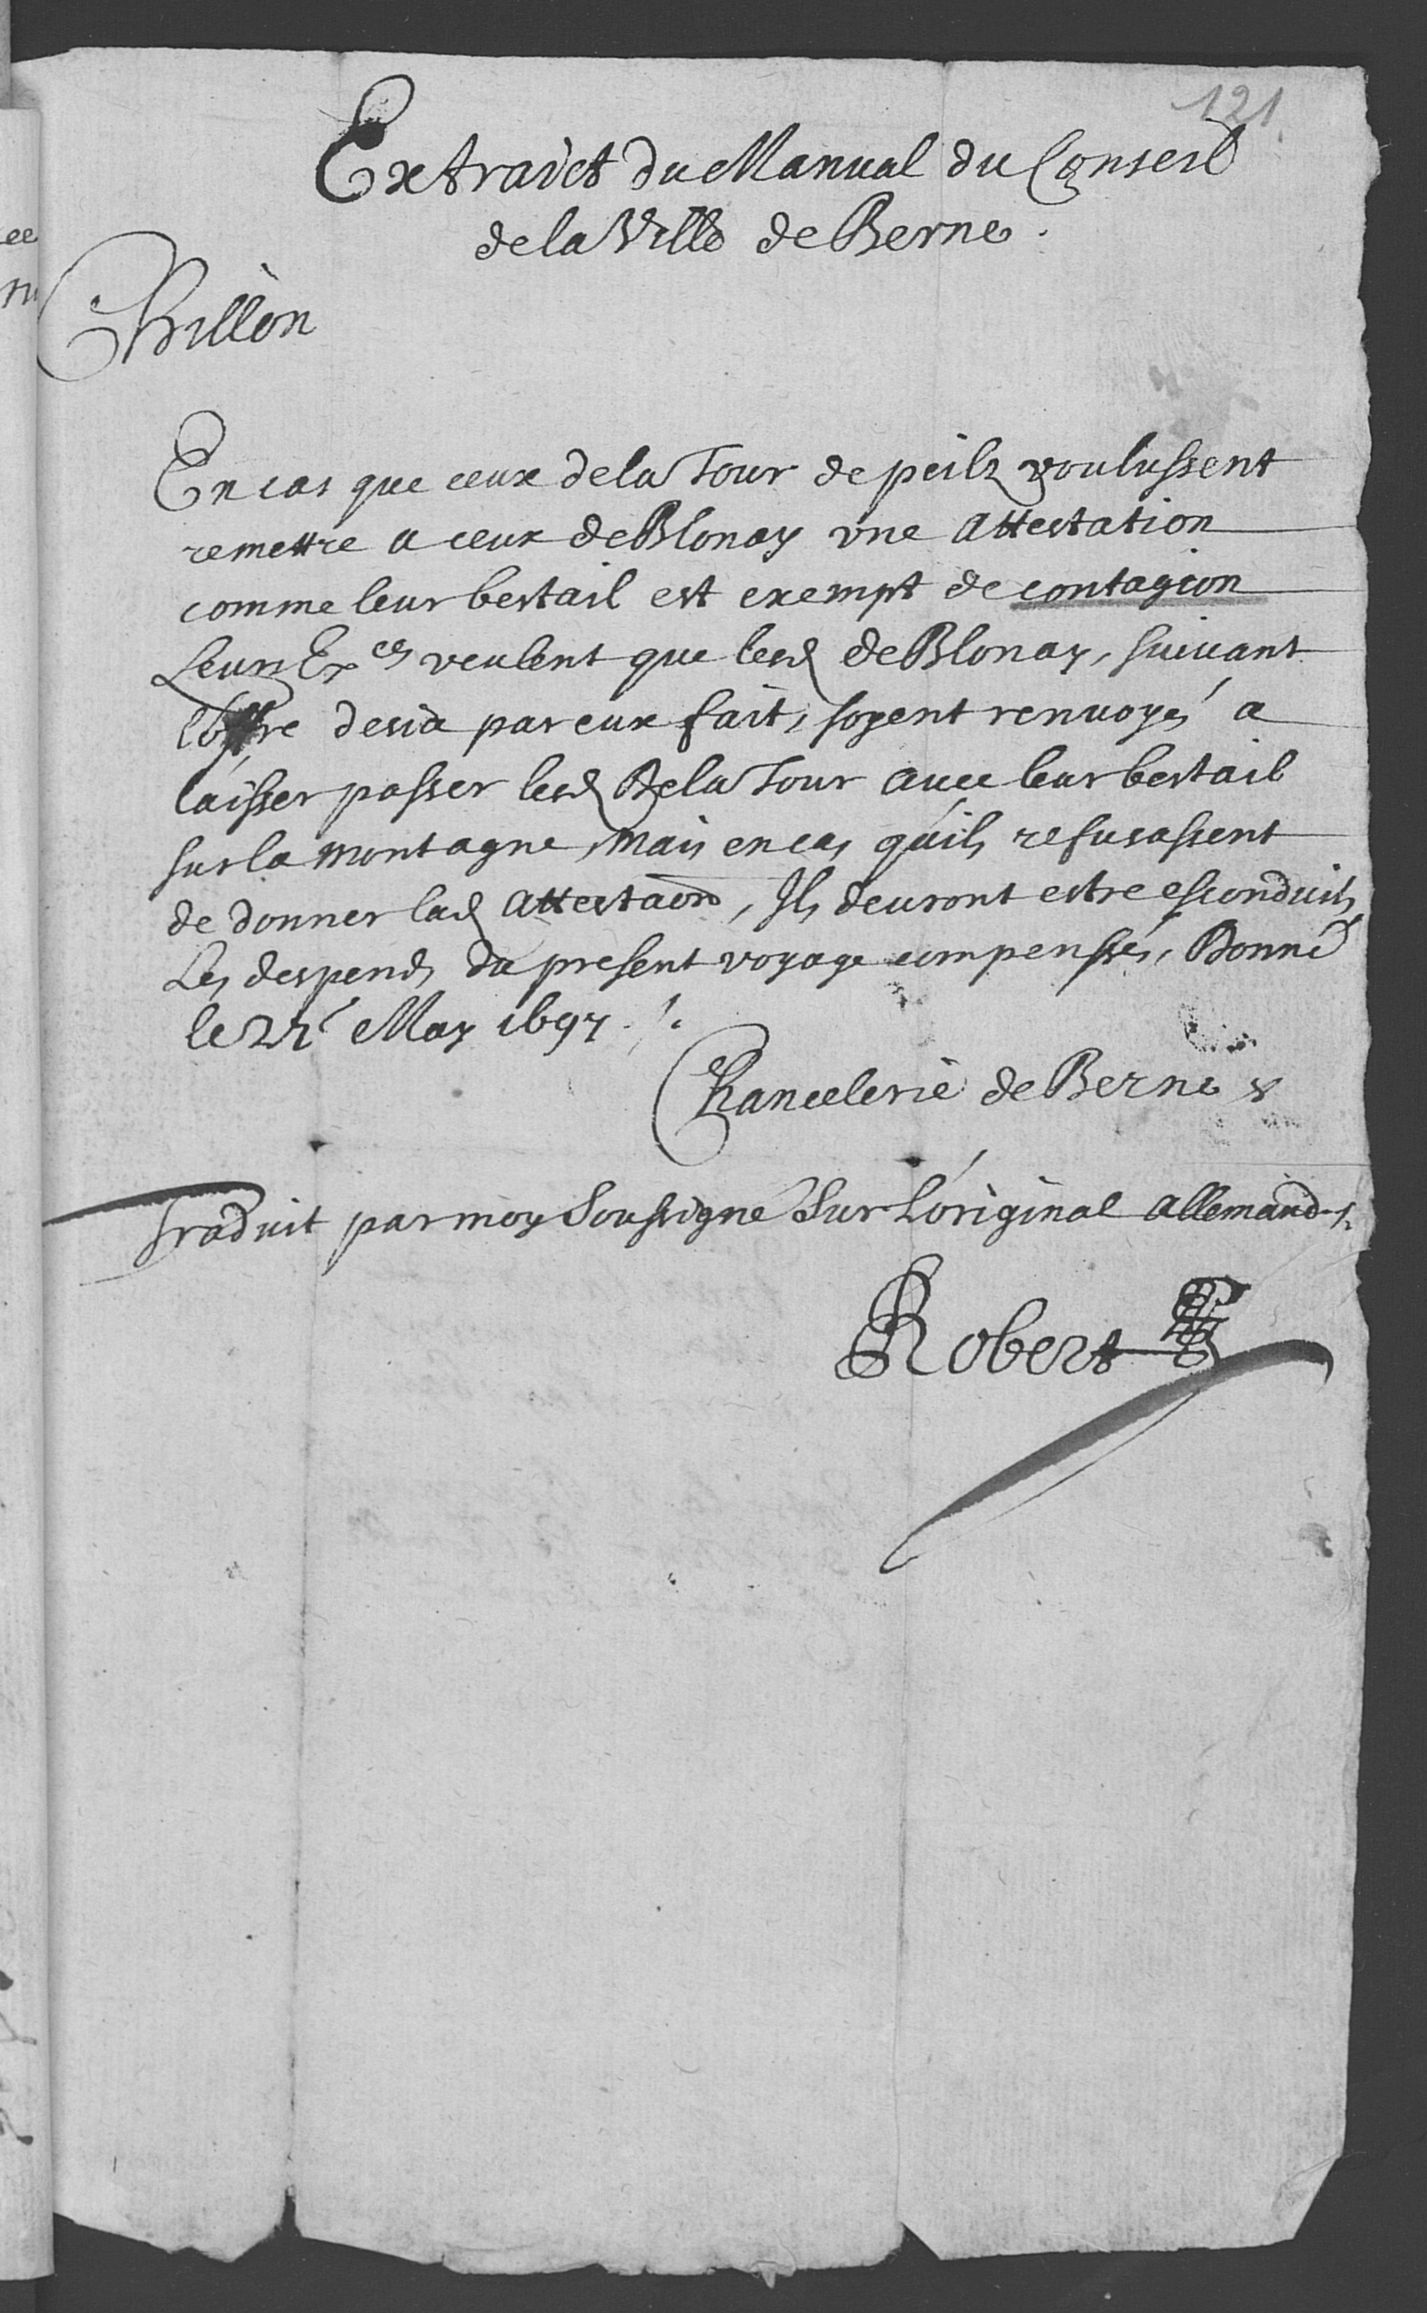 121.
Extraict du Manual du Conseil
de la Ville de Berne.
Chillon
En cas que ceux de la Tour de peilz voulussent
remettre a ceux de Blonay vne Attestation
comme leur bestail est exempt de contagion
Leurs Ex.ces veulent que lesd. de Blonay, suiuant
l'offre desia par eux fait, soyent renuoyés a
laisser passer lesd. de la Tour auec leur bestail
sur la montagne, Mais en cas qu'ils refusassent
de donner lad. Attestaon, Ils deuront estre esconduits,
Les despends du present voyage compensés, Donné
le May 1697.
Chancelerie de Berne
Traduit par moy Soussigné Sur L'original allemand.
Robert